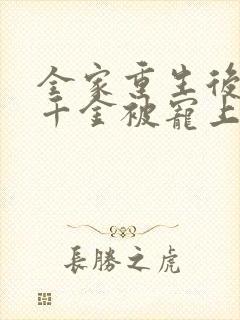 全家重生後
千金被寵上
長勝之虎